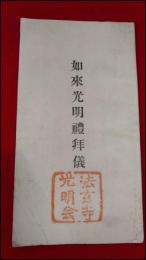 如來光明禮拜儀
法玄寺
光明会